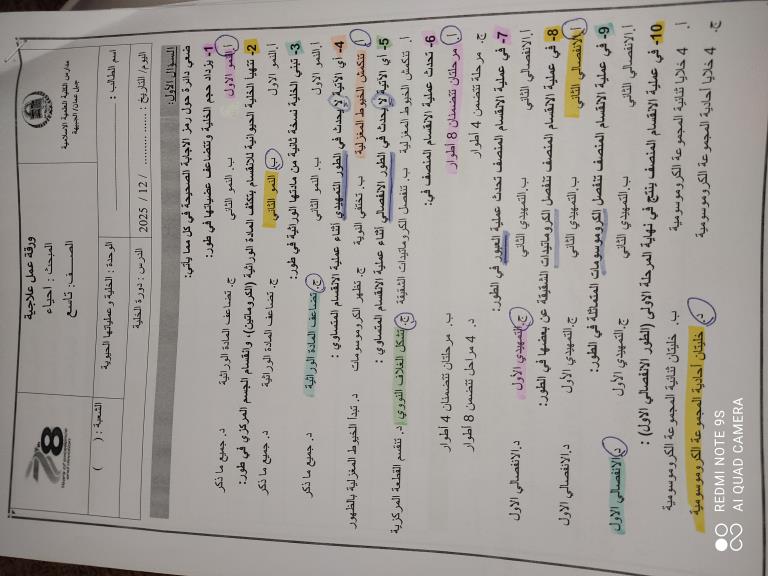 مدارس الكلية العلمية الاسلامية
جبل عمان/الجبيهة
ورقة عمل علاجية
الصف: تاسع
المبحث : أحياء
78
اسم الطالب :
الوحدة : الخلية و عملياتها الحيوية
الشعبة : ( )
اليوم/ التاريخ : ...... ......... / 12 / 2025
الدرس : دورة الخلية
السؤال الأول:
ضعي دائرة حول رمز الاجابة الصحيحة في كل مما يأتي:
1- يزداد حجم الخلية وتتضاعف عضياتها في طور:
أ.النمو الاول ب. النمو الثاني ج. تضاعف المادة الوراثية د. جميع ما ذكر
2- تتهيأ الخلية الحيوانية للانقسام بتكثف المادة الوراثية (الكروماتين)، وانقسام الجسم المركزي في طور:
أ.النمو الاول ب. النمو الثاني ج. تضاعف المادة الوراثية د. جميع ما ذكر
3- تبني الخلية نسخة ثانية من مادتها الوراثية في طور:
أ.النمو الاول ب. النمو الثاني ج. تضاعف المادة الوراثية د. جميع ما ذكر
4- أي الآتية لا يحدث في الطور التمهيدي أثناء عملية الانقسام المتساوي :
أ. تنكمش الخيوط المغزلية ب. تختفي النوية ج. تظهر الكروموسومات د. تبدأ الخيوط المغزلية بالظهور
5- أي الآتية لا يحدث في الطور الانفصالي أثناء عملية الانقسام المتساوي :
أ. تنكمش الخيوط المغزلية ب. تنفصل الكروماتيدات الشقيقة ج. تشكل الغلاف النووي د. تنقسم القطعة المركزية
6- تحدث عملية الانقسام المنصف في:
أ. مرحلتان تتضمنان 8 أطوار ب. مرحلتان تتضمنان 4 أطوار
ج. مرحلة تتضمن 4 أطوار د. 4 مراحل تتضمن 8 أطوار
7- في عملية الانقسام المنصف تحدث عملية العبور في الطور:
أ.الانفصالي الثاني ب.التمهيدي الثاني ج.التمهيدي الأول د.الانفصالي الاول
8- في عملية الانقسام المنصف تنفصل الكروماتيدات الشقيقة عن بعضها في الطور:
أ.الانفصالي الثاني ب.التمهيدي الثاني ج.التمهيدي الأول د.الانفصالي الاول
9- في عملية الانقسام المنصف تنفصل الكروموسومات المتماثلة في الطور:
أ.الانفصالي الثاني ب.التمهيدي الثاني ج.التمهيدي الأول د.الانفصالي الاول
10- في عملية الانقسام المنصف ينتج في نهاية المرحلة الاولى (الطور الانفصالي الاول) :
أ. 4 خلايا ثنائية المجموعة الكروموسومية ب. خليتان ثنائية المجموعة الكروموسومية
ج. 4 خلايا أحادية المجموعة الكروموسومية د. خليتان أحادية المجموعة الكروموسومية
REDMI NOTE 9S
AI QUAD CAMERA